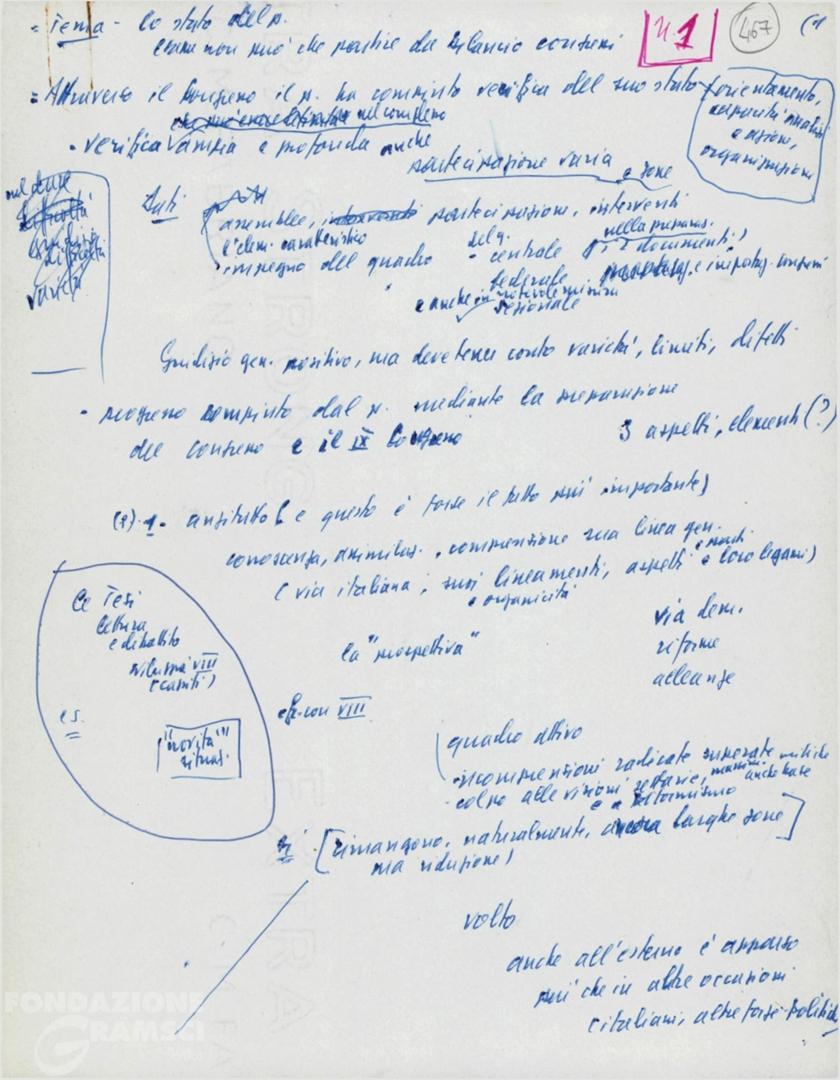 = Tema - Lo stato del p.
esame non può che partire da bilancio congressi
n. 1
467
(1
= Attraverso il Congresso il p. ha compiuto verifica del suo stato
(orientamento,
capacità
e azione,
organizzazione)
- verifica ampia e profonda anche
nel complesso
partecipazione varia e zone
Dati
assemblee, partecipazione, interventi
l'elem. caratteristico
impegno del quadro
- centrale
federale
sezionale
e anche in notevole misura
nella preparaz.
documenti)
e impostaz. congressi
difficoltà
varietà
Giudizio gen. positivo, ma deve tener conto varietà, limiti, difetti
- progresso compiuto dal p. mediante la preparazione
del congresso e il IX Congresso
3 aspetti, elementi (?)
1. anzitutto (e questo è forse il fatto più importante)
conoscenza, assimilaz., comprensione sua linea gen.
(via italiana, suoi lineamenti, aspetti e loro legami)
e organicità
la "prospettiva"
via dem.
riforme
alleanze
Le Tesi
lettura
e dibattito
sviluppi VIII
es.
"novità"
situaz.
con VIII
quadro attivo
- incomprensioni radicate superate
- colpo alle visioni settarie, anche base
e a riformismo
[rimangono, naturalmente, ancora larghe zone]
ma riduzione)
volto
anche all'esterno è apparso
più che in altre occasioni
(italiani, altre forze politiche
FONDAZIONE
GRAMSCI